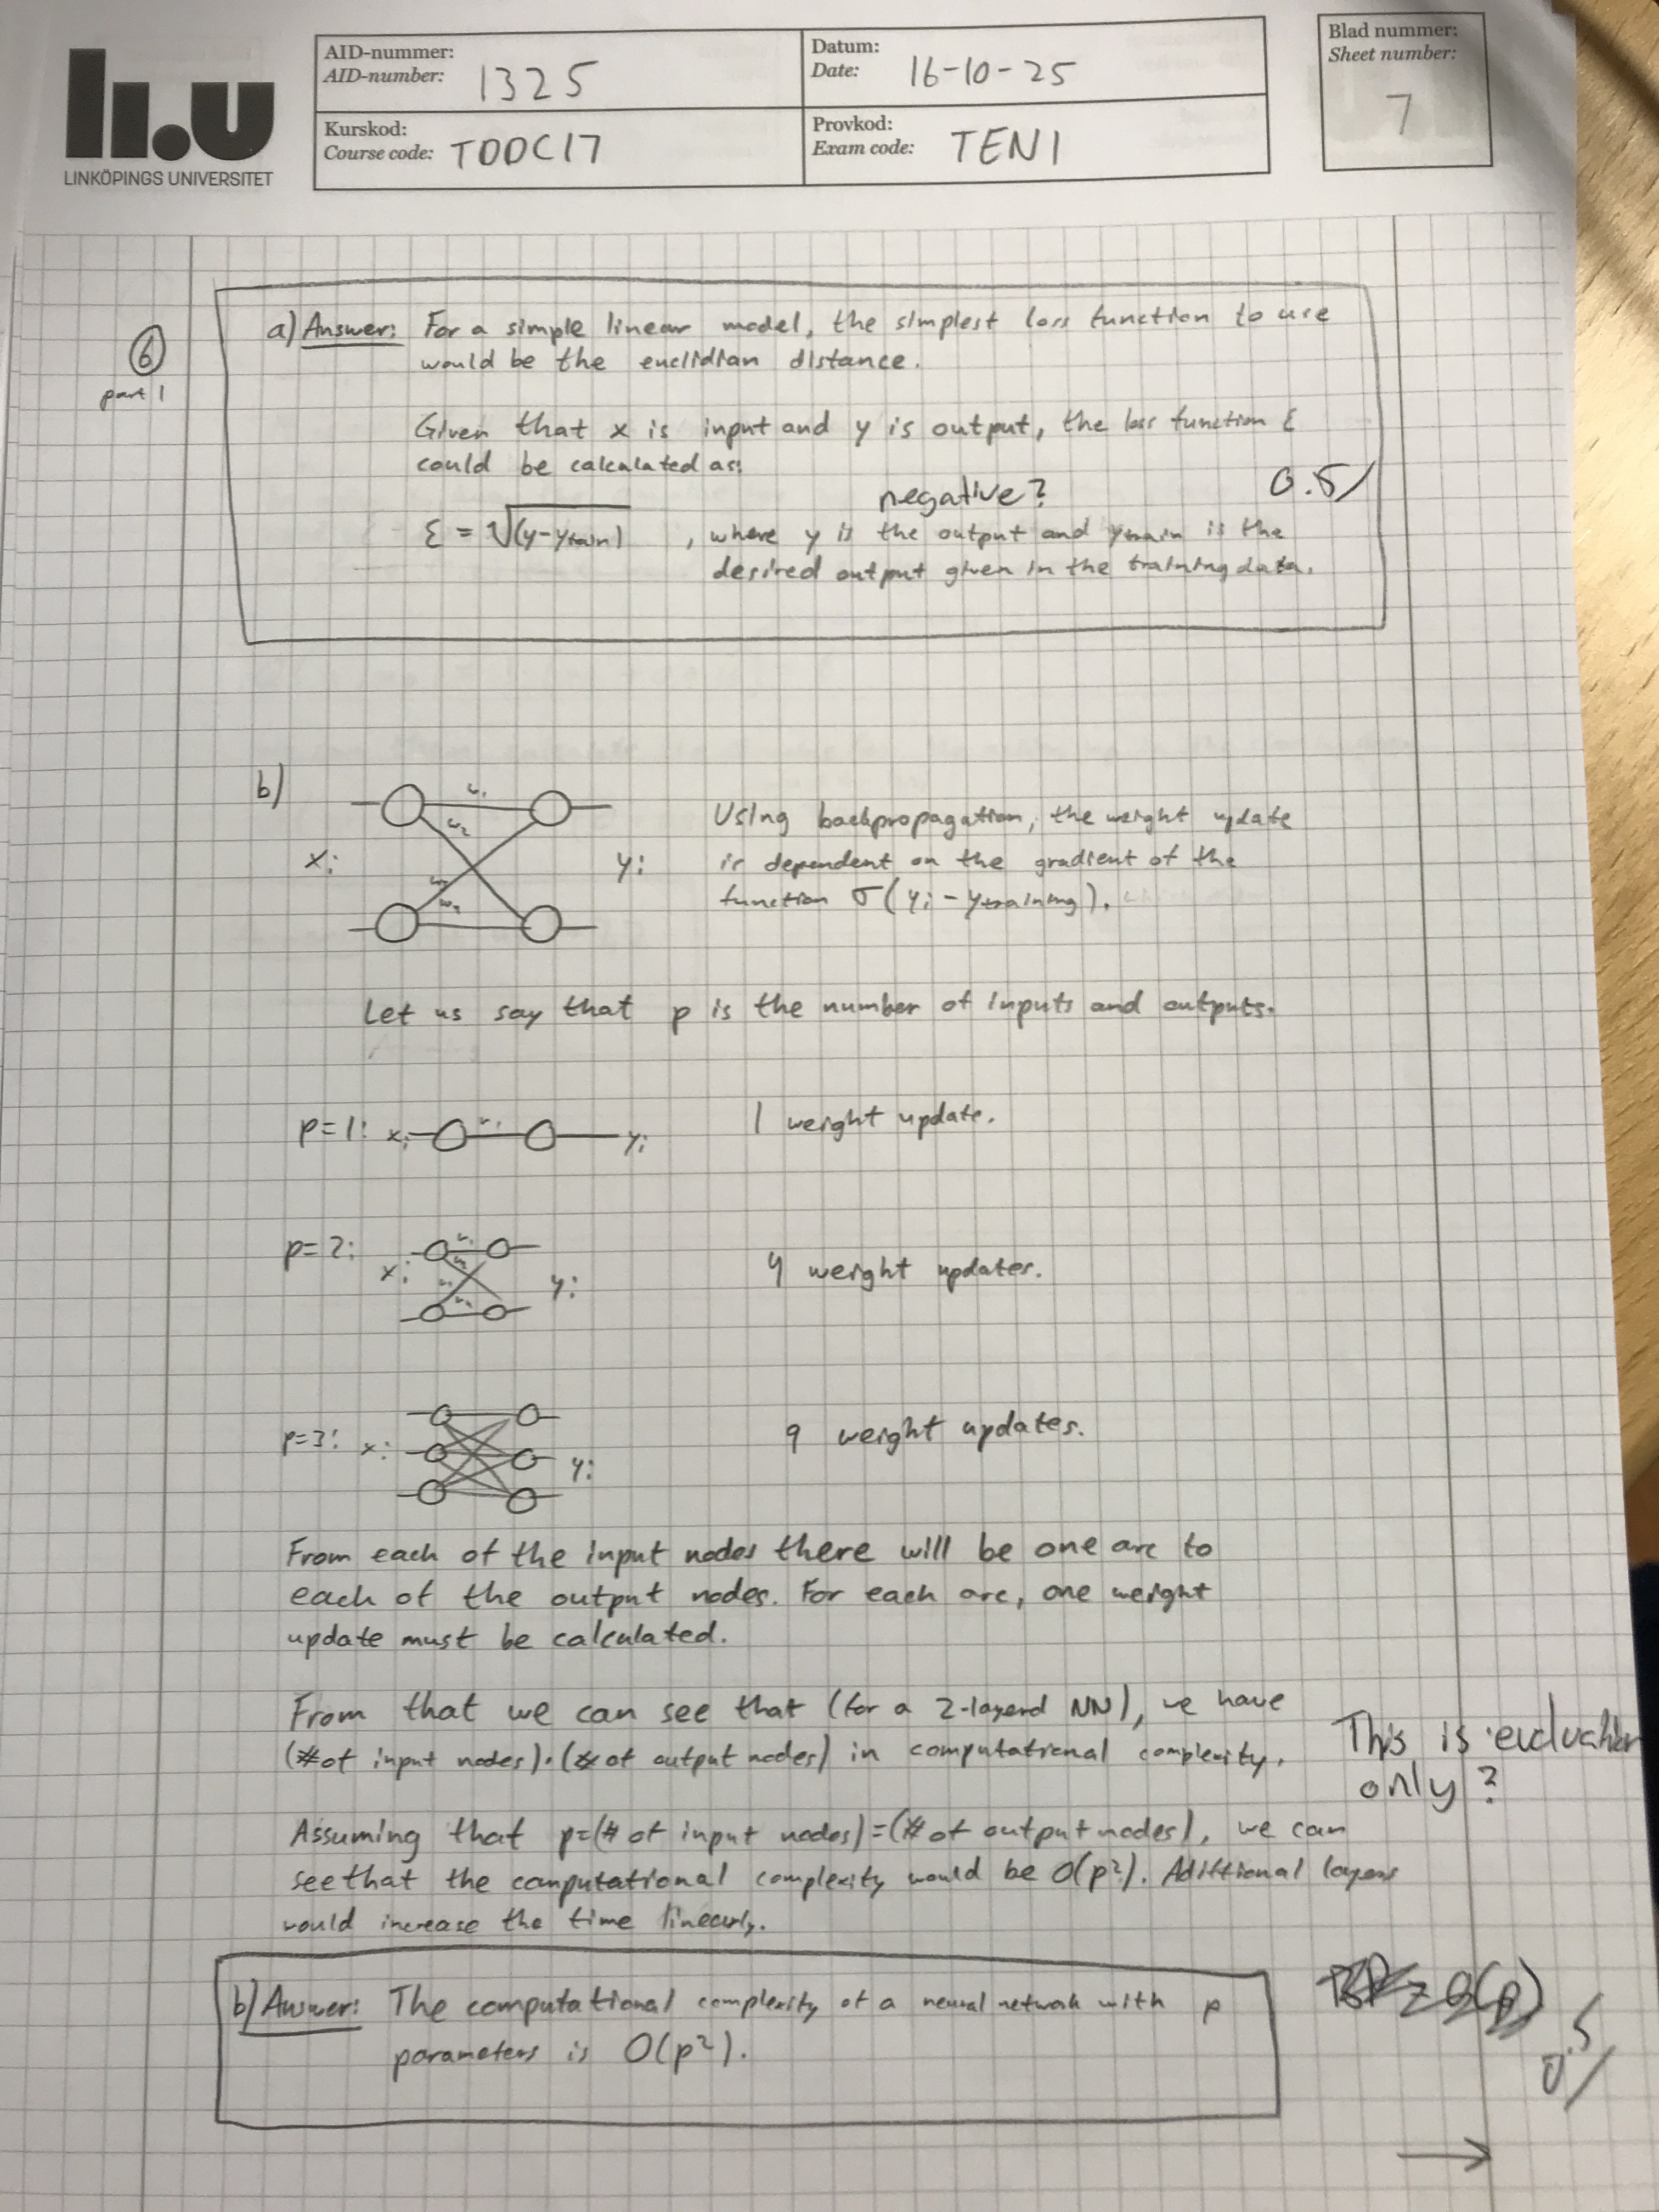 li.u
LINKÖPINGS UNIVERSITET
AID-nummer:
AID-number: 1325
Datum:
Date: 16-10-25
Blad nummer:
Sheet number:
7
Kurskod:
Course code: TDDC17
Provkod:
Exam code: TEN1
6
part 1
a) Answer: For a simple linear model, the simplest loss function to use
would be the euclidian distance.
Given that x is input and y is output, the loss function ε
could be calculated as:
negative? 0.5/
ε = √(y-ytrain) , where y is the output and ytrain is the
desired output given in the training data.
b)
w1
w2
xi
yi
w3
w4
Using backpropagation, the weight update
is dependent on the gradient of the
function σ(yi - ytraining).
Let us say that p is the number of inputs and outputs.
p=1: xi w1 yi 1 weight update.
p=2: xi w1 w2 w3 w4 yi 4 weight updates.
p=3: xi yi 9 weight updates.
From each of the input nodes there will be one arc to
each of the output nodes. For each arc, one weight
update must be calculated.
From that we can see that (for a 2-layerd NN), we have
(# of input nodes)·(# of output nodes) in computational complexity.
This is evaluation
only?
Assuming that p=(# of input nodes)=(# of output nodes), we can
see that the computational complexity would be O(p²). Adittional layers
would increase the time linearly.
b) Answer: The computational complexity of a neural network with p
parameters is O(p²).
0.5/
→